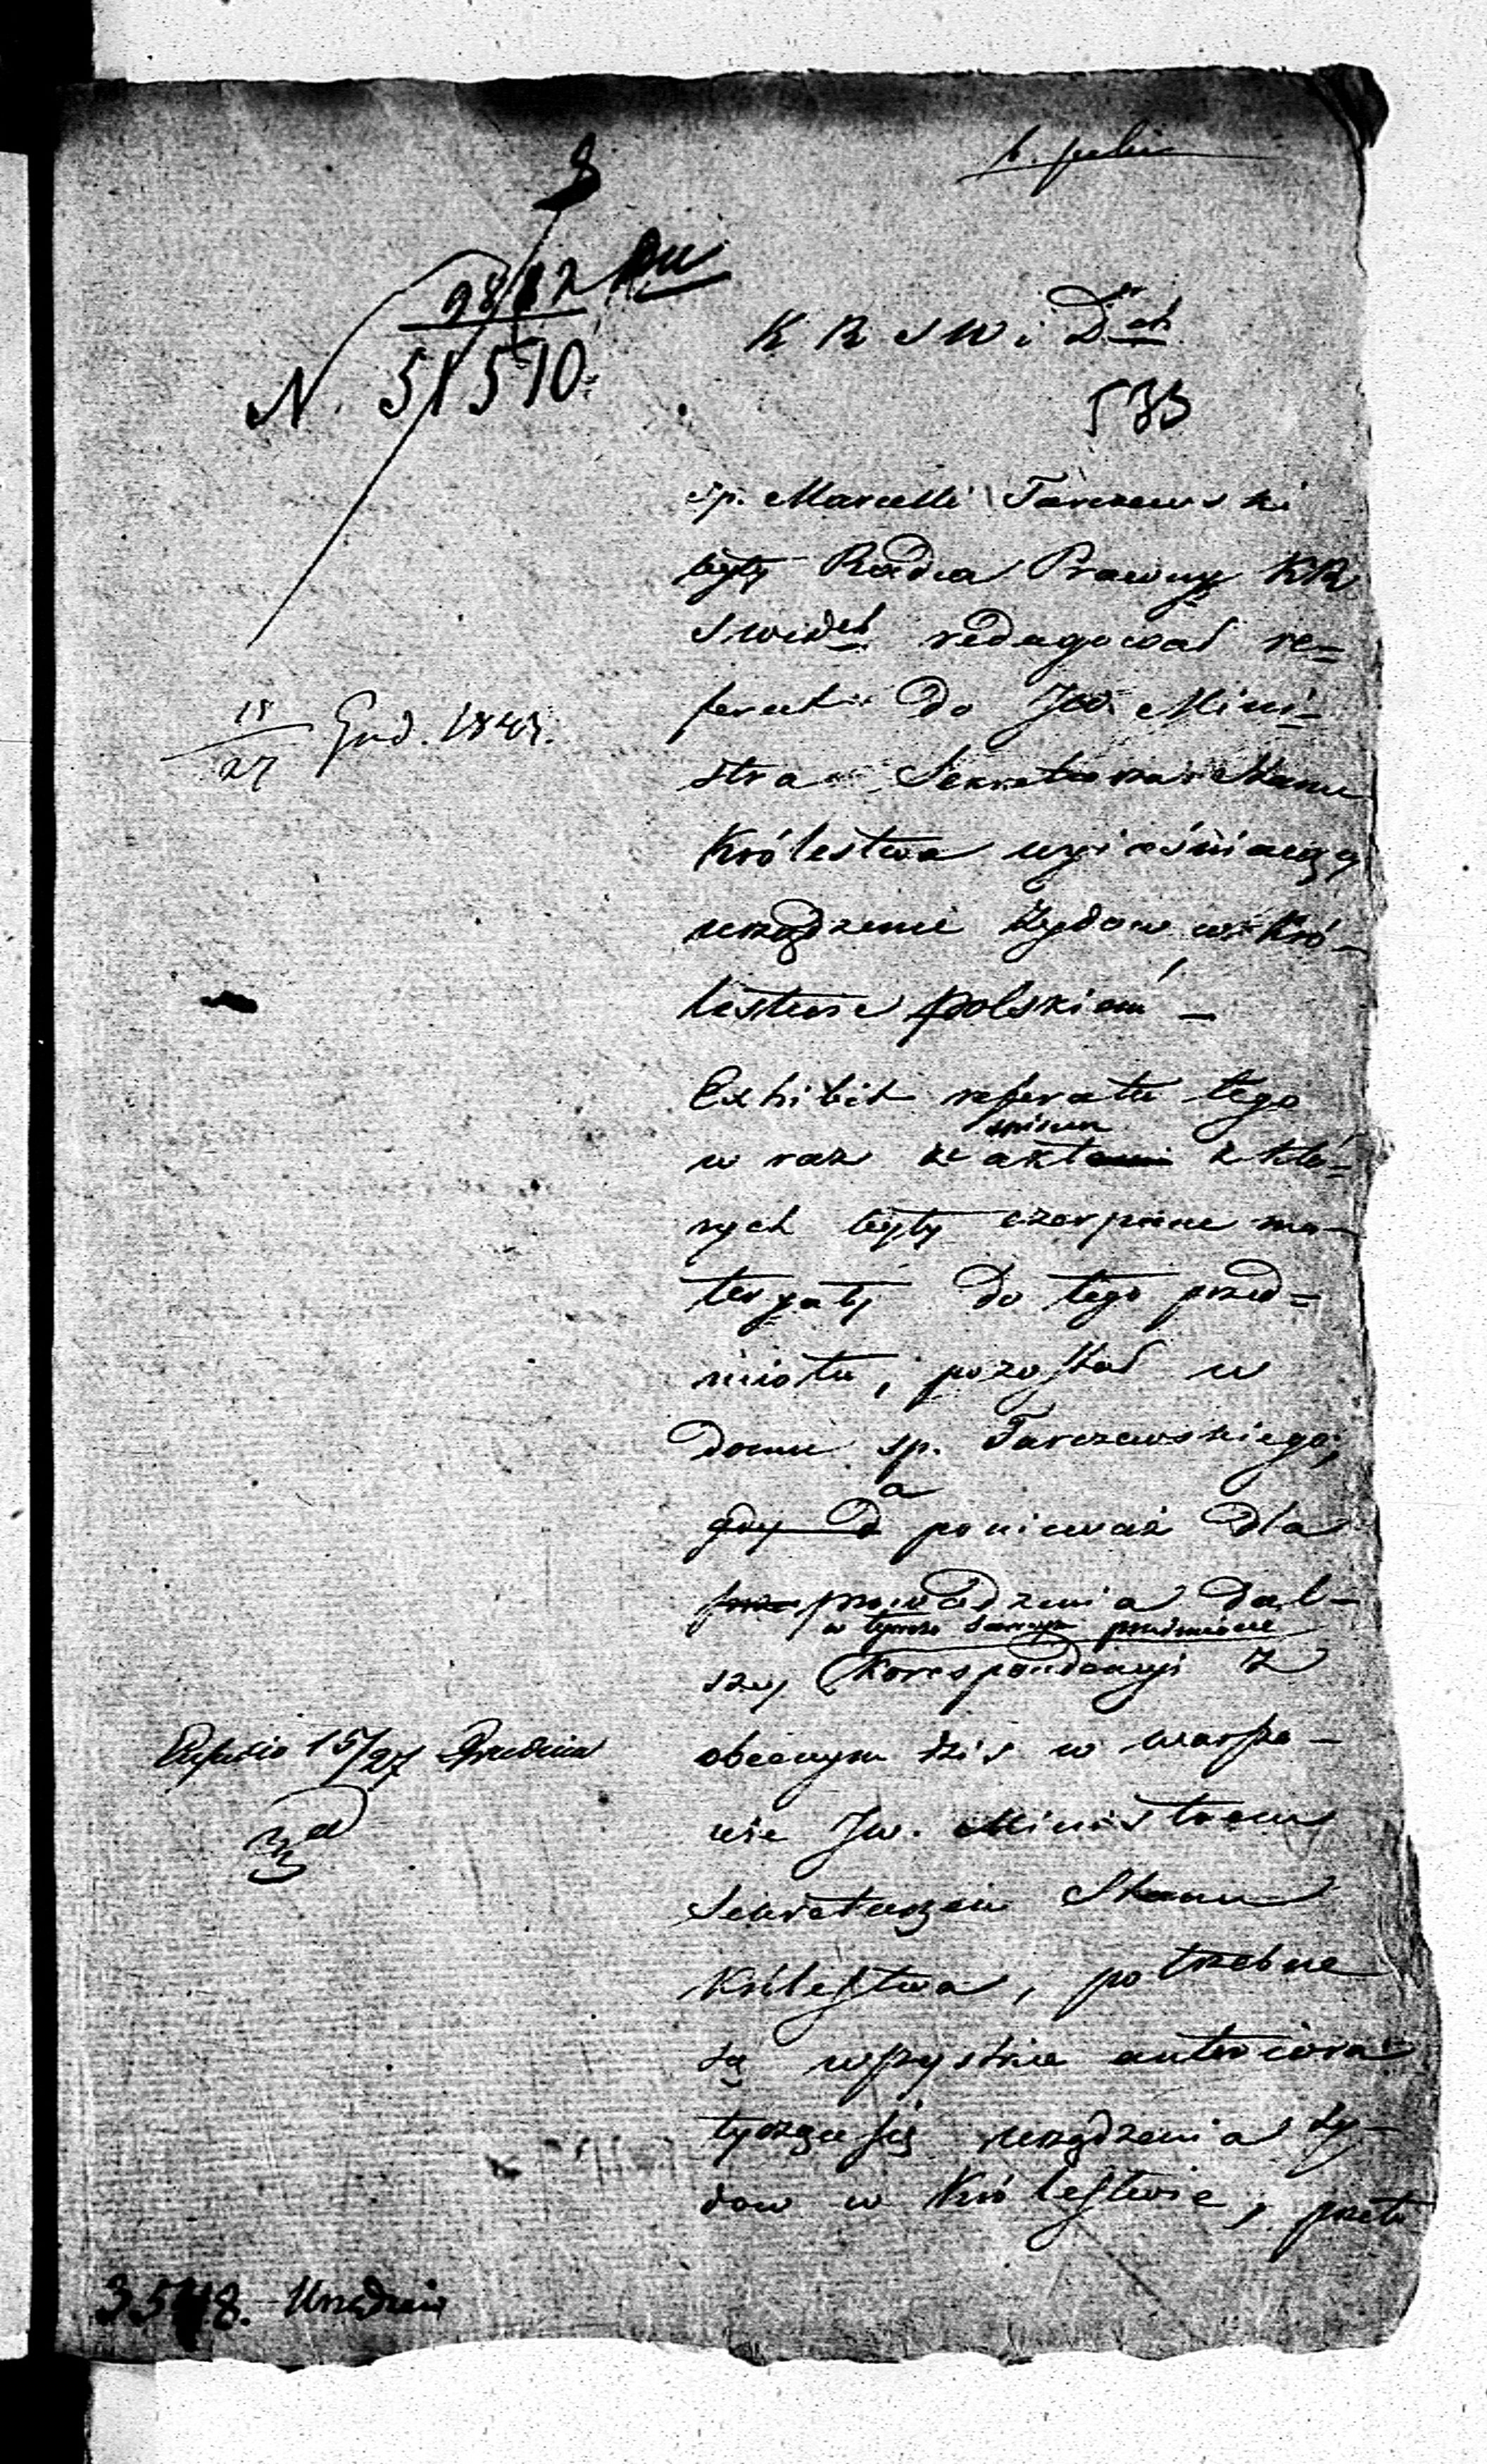 8
b. pilne
9882
N. 51510.
K R S W i D
533
sp. Marcelli Tarczewski
były Radca Prawny KR
SWiD redagował re=
ferat do JW. Mini=
stra Sekretarza Stanu
Królestwa wyjaśniający
urządzenie Żydow w Kró-
lestwie polskiem –
15/27 Grud. 1843.
Exhibit referatu tego
spisem
w raz ze akt z któ=
rych były czerpane ma-
teryały do tego przed=
miotu, pozostał w
domu sp. Tarczewskiego,
a
gdy d ponieważ dla
prze prowadzenia dal-
w tymże samym przedmiocie
szej korespondencyi z
obecnym dziś w Warsza-
wie JW. Ministrem
Sekretarzem Stanu
Królestwa, potrzebne
są wszystkie anteriora
tyczące się urządzenia Ży-
dow w Królestwie, przeto
Expedio 15/27 Grudnia
3548. Urządzen